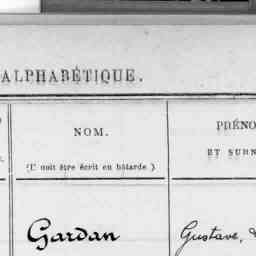 ALPHABÉTIQUE.
NOM.
PRÉNO
ET SURN
(L' doit être écrit en bâtarde)
Gardan
Gustave,